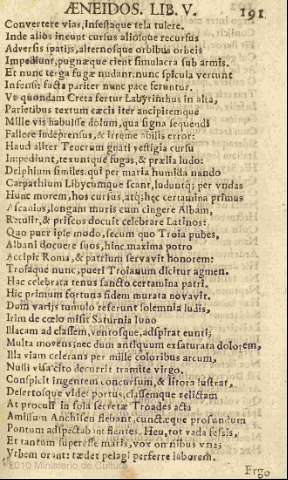 ÆNEIDOS. LIB. V. 191.
Convertere vias, infestaque tela tulere.
Inde alios ineunt cursus aliosque recursus
Adversis spatijs, alternosque orbibus orbeis
Impediunt, pugnæque cient simulacra sub armis.
Et nunc terga fugæ nudant: nunc spicula vertunt
Infensi: facta pariter nunc pace feruntur.
Vt quondam Creta fertur Labyrinthus in alta,
Parietibus textum cæcis iter ancipitemque
Mille viis habuisse dolum, qua signa sequendi
Falleret indeprensus, & irremeabilis error:
Haud aliter Teucrum gnati vestigia cursu
Impediunt, texuntque fugas, & prælia ludo:
Delphinum similes. qui per maria humida nando
Carpathium Libycumque secant, luduntq; per vndas
Hunc morem, hos cursus, atq; hæc certamina primus
Ascanius, longam muris cum cingeret Albam,
Retulit, & priscos docuit celebrare Latinos:
Quo puer ipse modo, secum quo Troia pubes,
Albani docuere suos, hinc maxima porro
Accipit Roma, & patrium servavit honorem:
Troiaque nunc, pueri Troianum dicitur agmen.
Hac celebrata tenus sancto certamina patri.
Hic primum fortuna fidem mutata novavit.
Dum varijs tumulo referunt solemnia ludis,
Irim de cœlo misit Saturnia Iuno
Iliacam ad classem, ventosque adspirat eunti;
Multa movens: nec dum antiquum exsaturata dolorem,
Illa viam celerans per mille coloribus arcum,
Nulli visa cito decurrit tramite virgo.
Conspicit ingentem concursum, & litora lustrat,
Desertosque videt portus, classemque relictam
At procul in sola secretæ Troades acta
Amissum Anchisen flebant, cunctæque profundum
Pontum adspectabant flentes. Heu, tot vada fessis,
Et tantum superesse maris, vox omnibus vnas
Vrbem orant: tædet pelagi perferre laborem.
Ergo
©2010 Ministerio de Cultura